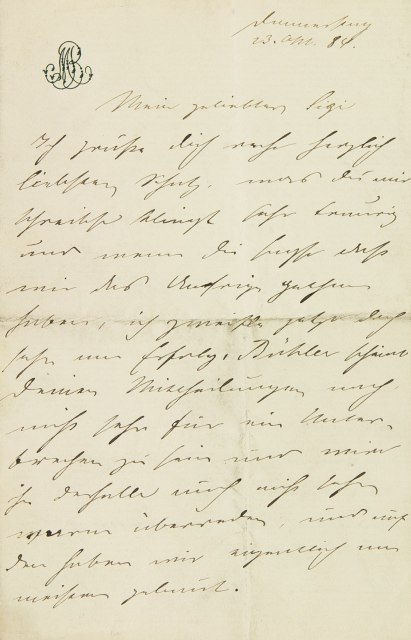 Donnerstag
23. Okt. 84.
Mein geliebter Sigi
Ich grüße dich recht herzlich
liebster Schatz, was du mir
schreibst klingt sehr traurig
und wenn du sagst dass
wir das Unsrige gethan
haben, ich zweifle jetzt doch
sehr am Erfolg. Bühler scheint
deinen Mittheilungen nach
nicht sehr für ein Unter-
brechen zu sein und wird
ihn deshalb auch nicht sehr
warm überreden, und auf
den haben wir eigentlich am
meisten gebaut.